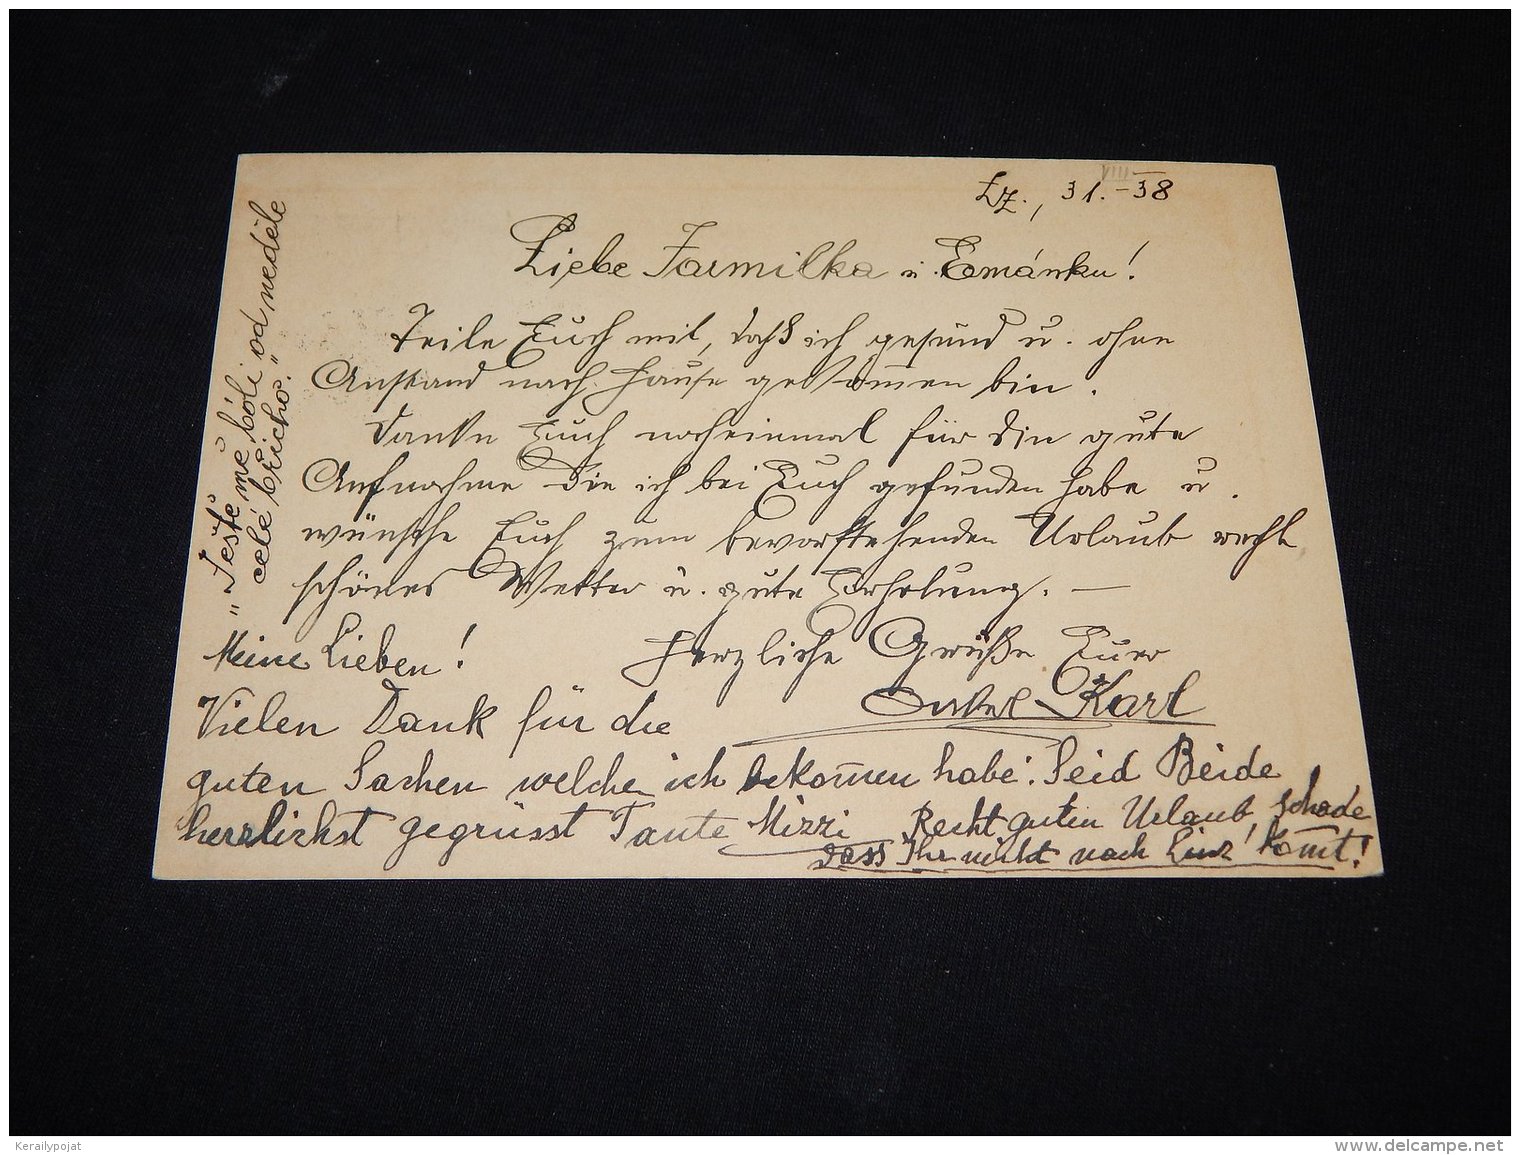 Lz., 31. VIII - 38
Liebe Jarmilka u. Ermánku!
Teile Euch mit, daß ich gesund u. ohne
Anstand nach Hause gekom̅en bin.
Danke Euch nocheinmal für die gute
Aufnahme die ich bei Euch gefunden habe u.
wünsche Euch zum bevorstehenden Urlaub recht
schönes Wetter u. gute Erholung. —
Herzliche Grüße Euer
Onkel Karl
Meine Lieben!
Vielen Dank für die
guten Sachen welche ich bekom̅en habe. Seid Beide
herzlichst gegrüsst Tante Mizzi
Recht guten Urlaub, schade
dass Ihr nicht nach Linz kom̅t!
"Ješťe mě bóli od neděle
celé břicho."
Kerailypojat
delcampe.net